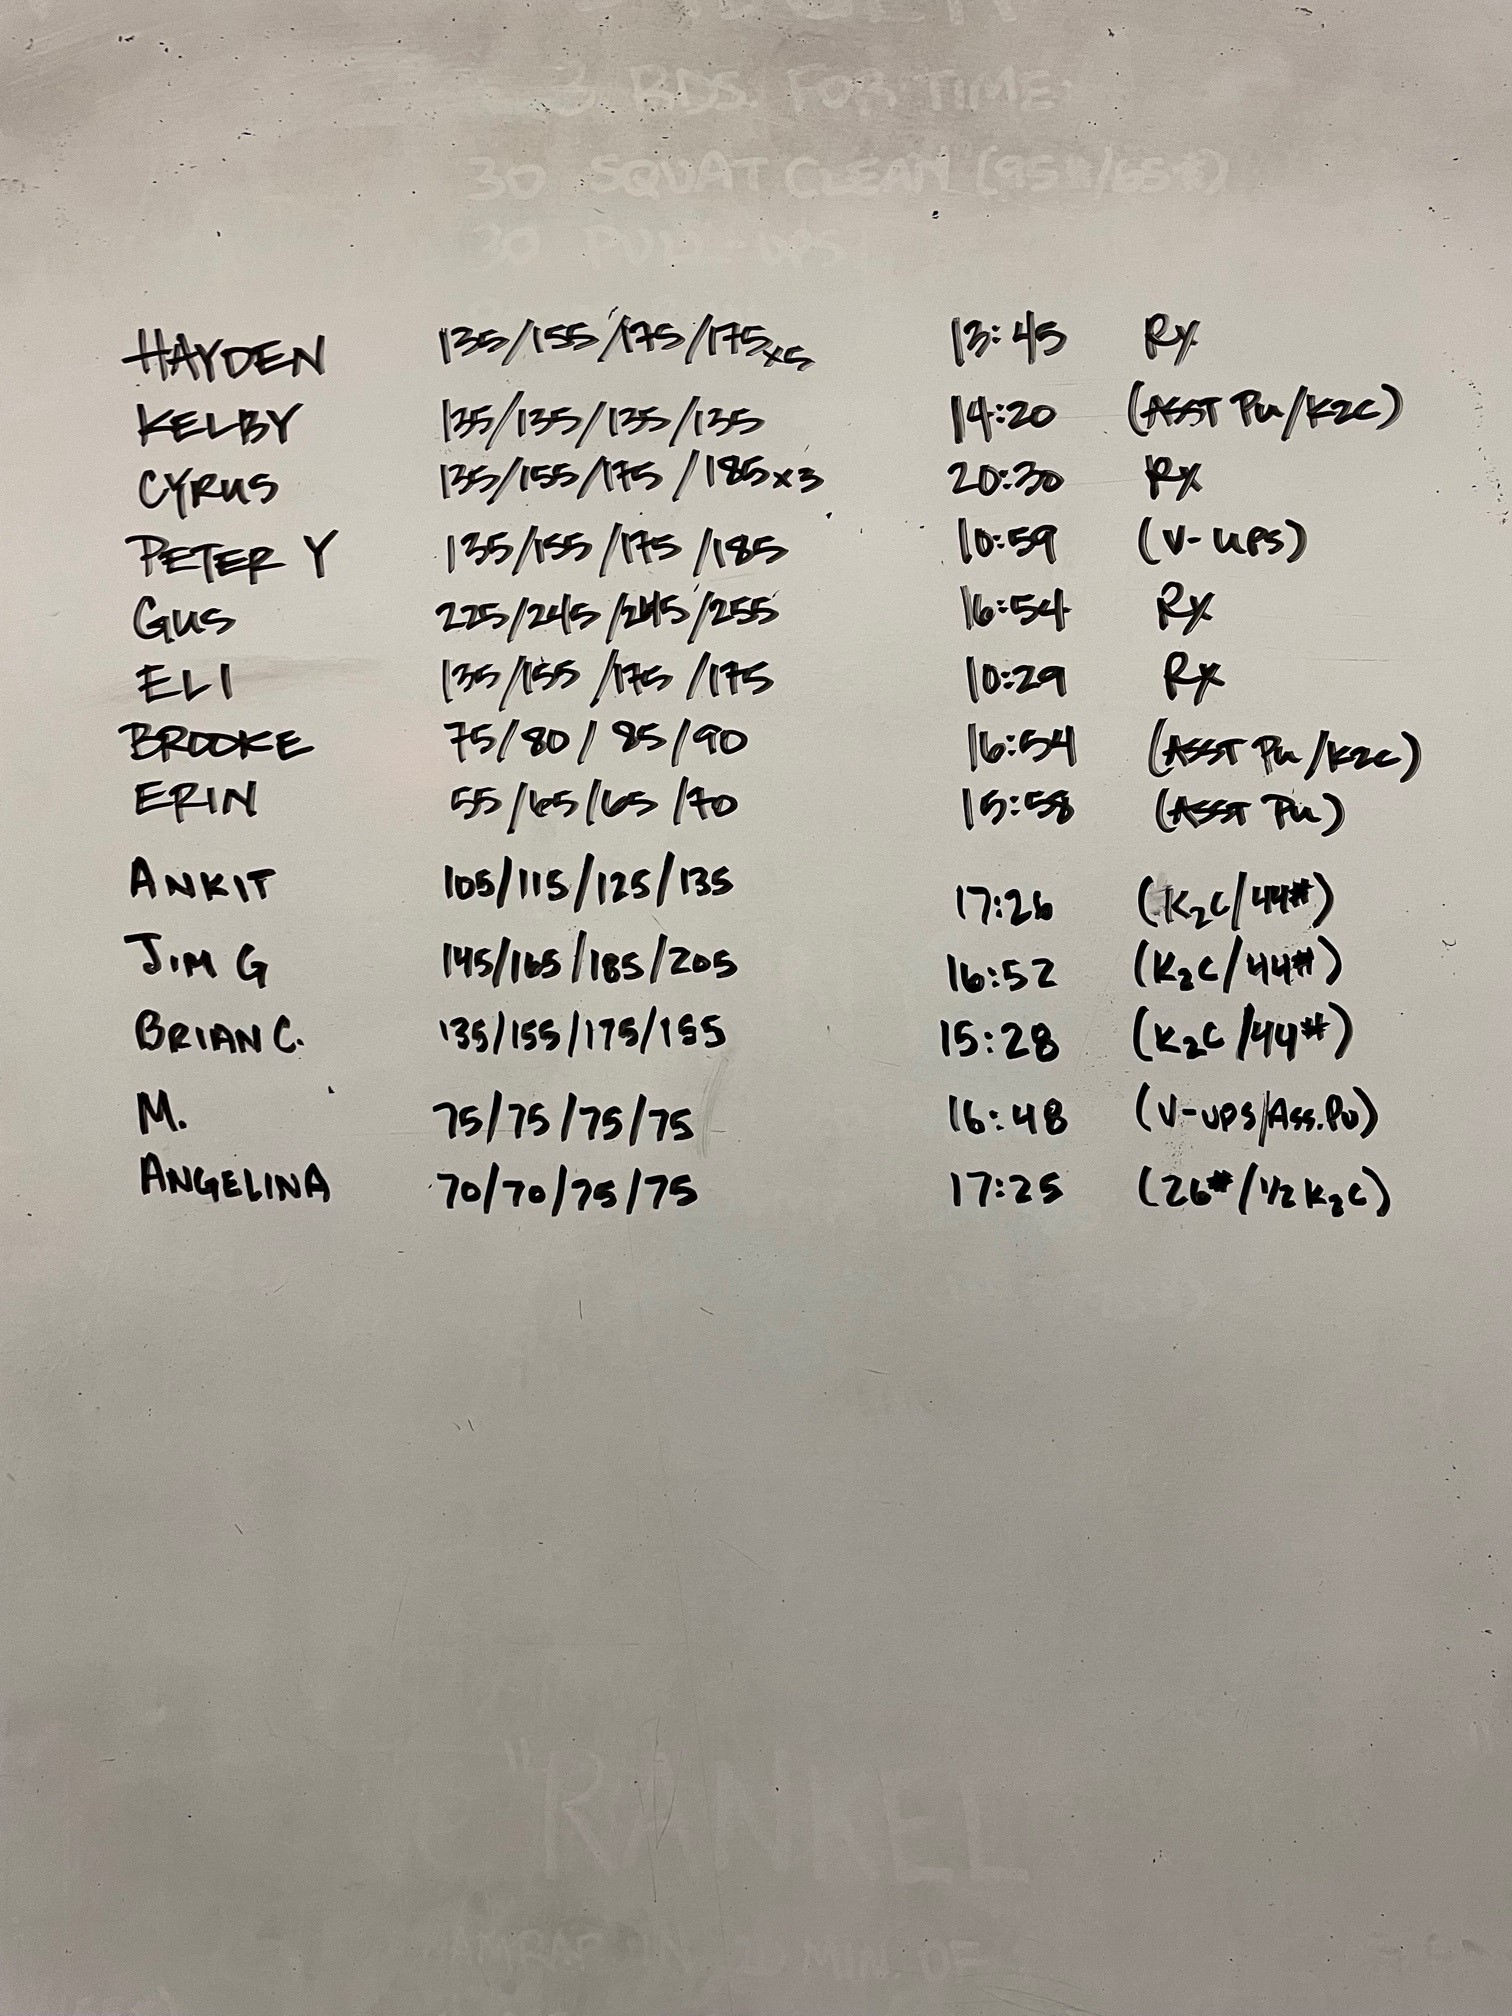 3 RDS. FOR TIME:
30 SQUAT CLEAN (95#/65#)
30 PULL-UPS
HAYDEN 135/155/175/175x5 13:45 Rx
KELBY 135/135/135/135 14:20 (ASST PU/K2C)
CYRUS 135/155/175/185x3 20:30 Rx
PETER Y 135/155/175/185 10:59 (V-UPS)
GUS 225/245/245/255 16:54 Rx
ELI 135/155/175/175 10:29 Rx
BROOKE 75/80/85/90 16:54 (ASST PU/K2C)
ERIN 55/65/65/70 15:58 (ASST PU)
ANKIT 105/115/125/135 17:26 (K2C/44#)
JIM G 145/165/185/205 16:52 (K2C/44#)
BRIAN C. 135/155/175/185 15:28 (K2C/44#)
M. 75/75/75/75 16:48 (V-UPS/Ass.PU)
ANGELINA 70/70/75/75 17:25 (26#/1/2 K2C)
"RANKEL
AMRAP IN 20 MIN. OF